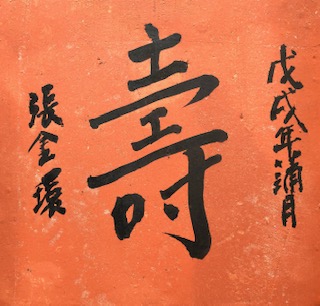 戊戌年蒲月
壽
張金環